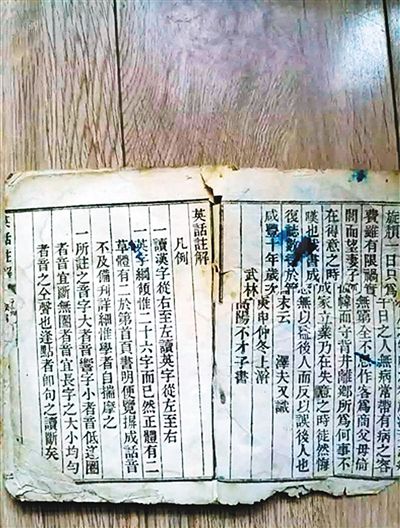 一日只為 午日之人無病常帶有病之容
費雖有限 無第全不 作客為商父母倚
閭而望妻子 幃而守昔井離鄉所為何事不
在得意之時 成家立業乃在失意之時徒然悔
嘆也茲書成 思無以益後人而反以誤後人也
復誌數言於 末云 澤夫又識
咸豐十年歲次庚申仲冬上澣
武林高陽不才子書
英話註解
凡例
一讀漢字從右至左讀英字從左至右
一英字綱領惟二十六字而已然正體有二
草體有二於第首頁書明便覽 成話音
不及備刋詳細惟學者自揣摩之
一所註之音字大者音響字小者音低逢圈
者音宜斷無圈者音宜長字之大小均勻
者音之全聲也逢點者卽句之讀斷矣
英話註解